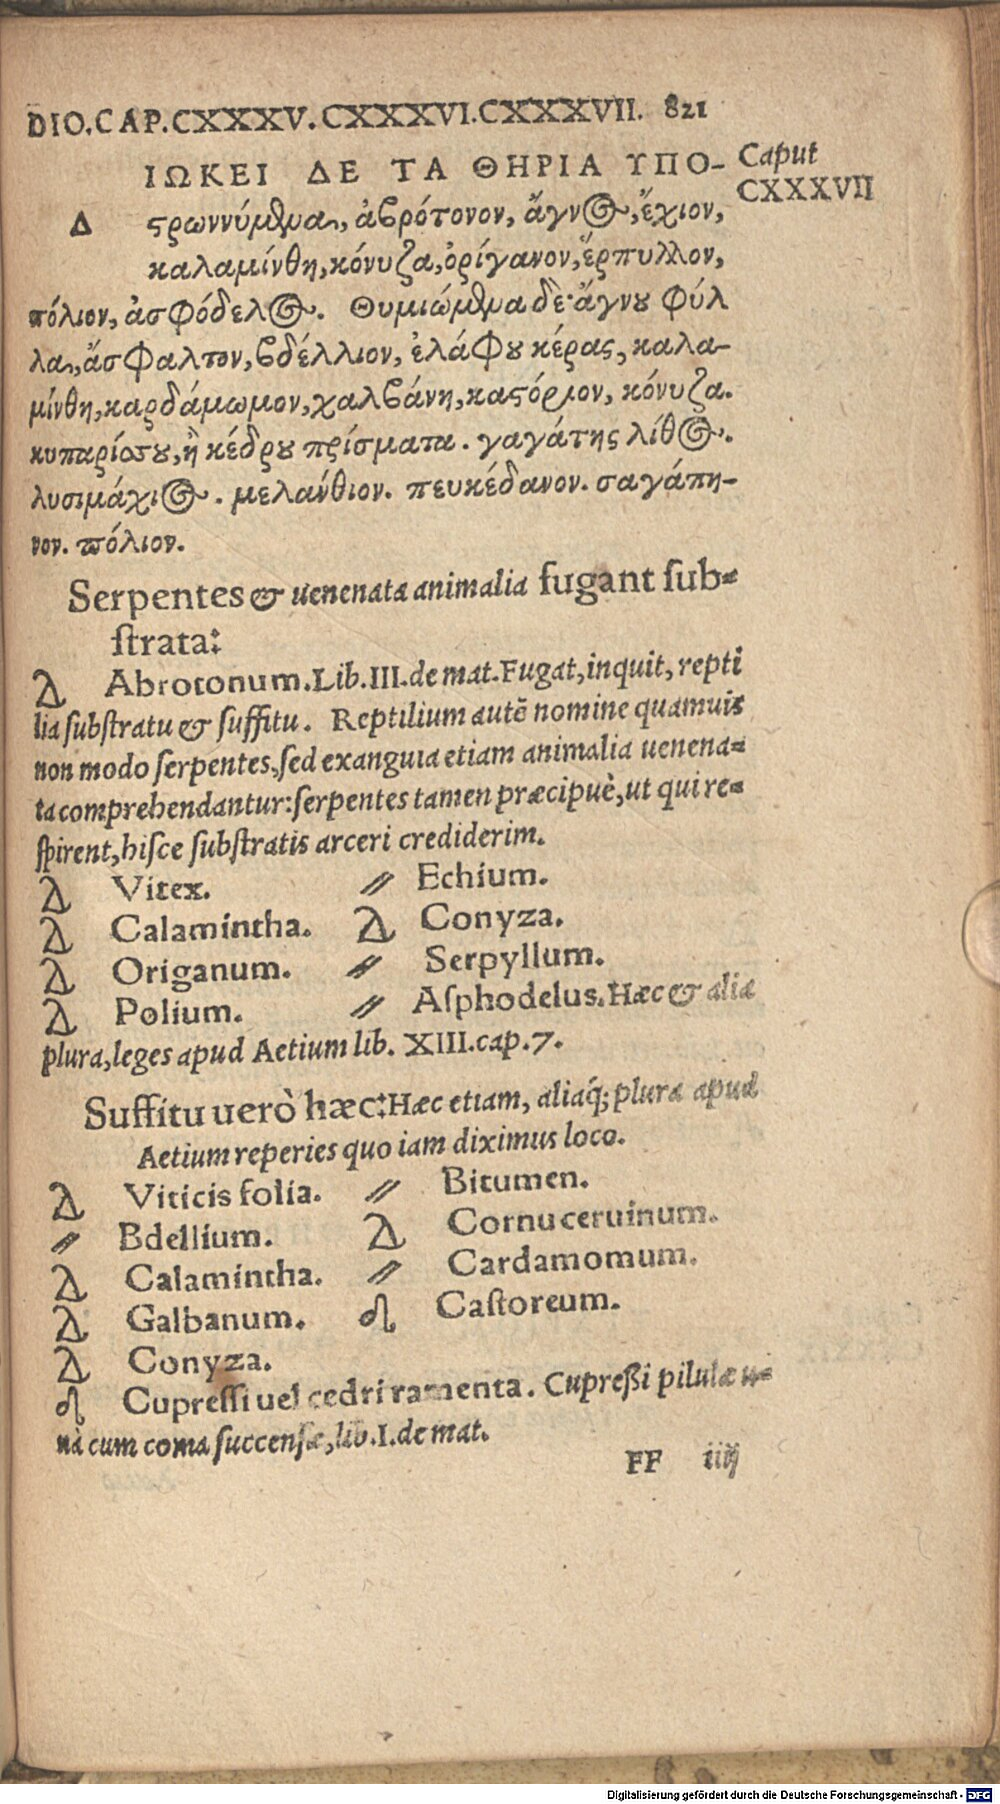 DIO.CAP.CXXXV.CXXXVI.CXXXVII. 821
ΙΩΚΕΙ ΔΕ ΤΑ ΘΗΡΙΑ ΥΠΟ-
Caput
CXXXVII
Δ
ςρωννύμϑμα, ἀβρότονον, ἄγνος, ἔχιον,
καλαμίνθη, κόνυζα, ὀρίγανον, ἕρπυλλον,
πόλιον, ἀσφόδελος. Θυμιώμϑμα δὲ· ἄγνου φύλ
λα, ἄσφαλτον, βδέλλιον, ἐλάφου κέρας, καλα-
μίνθη, καρδάμωμον, χαλβάνη, καςόριον, κόνυζα.
κυπαρίσσου, ἢ κέδρου πρίσματα. γαγάτης λίθος.
λυσιμάχιος. μελάνθιον. πευκέδανον. σαγάπη-
νον. πόλιον.
Serpentes & uenenata animalia fugant sub-
strata:
Abrotonum. Lib. III. de mat. Fugat, inquit, repti
lia substratu & suffitu. Reptilium autē nomine quamuis
non modo serpentes, sed exanguia etiam animalia uenena-
ta comprehendantur: serpentes tamen præcipuè, ut qui re-
spirent, hisce substratis arceri crediderim.
Vitex. Echium.
Calamintha. Conyza.
Origanum. Serpyllum.
Polium. Asphodelus. Hæc & alia
plura, leges apud Aetium lib. XIII. cap. 7.
Suffitu uerò hæc: Hæc etiam, aliaq́; plura apud
Aetium reperies quo iam diximus loco.
Viticis folia. Bitumen.
Bdellium. Cornu ceruinum.
Calamintha. Cardamomum.
Galbanum. Castoreum.
Conyza.
Cupressi uel cedri ramenta. Cupreßi pilulæ u-
nà cum coma succensæ, lib. I. de mat.
FF iiij
Digitalisierung gefördert durch die Deutsche Forschungsgemeinschaft - DFG